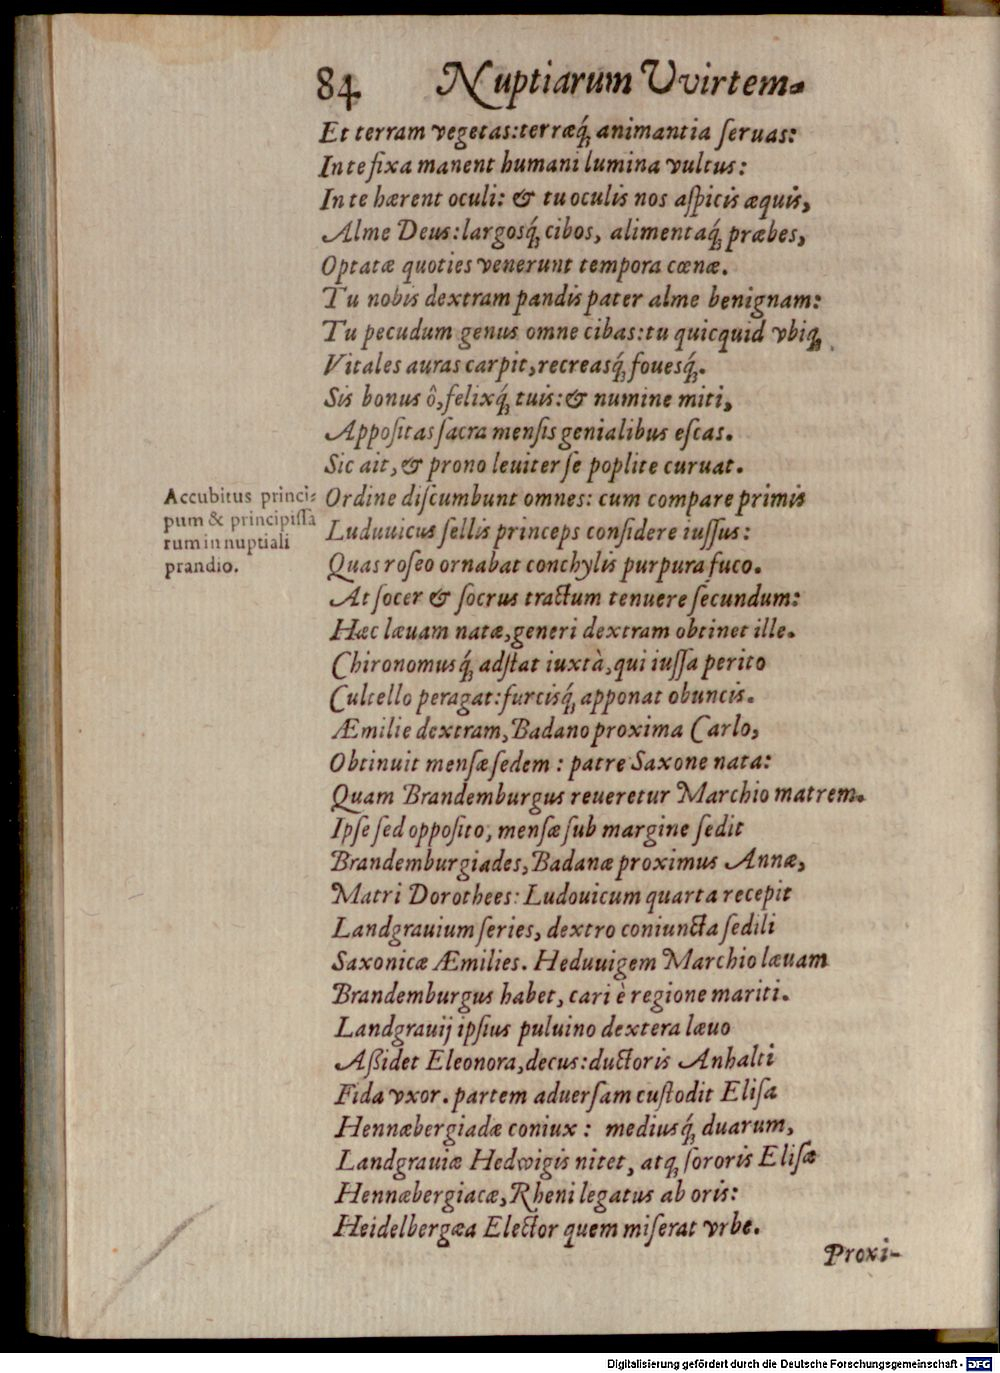 84 Nuptiarum Vvirtem-
Et terram vegetas: terræq́; animantia ſeruas:
In te fixa manent humani lumina vultus:
In te hærent oculi: & tu oculis nos aſpicis æquis,
Alme Deus: largosq́; cibos, alimentaq́; præbes,
Optatæ quoties venerunt tempora cœnæ.
Tu nobis dextram pandis pater alme benignam:
Tu pecudum genus omne cibas: tu quicquid vbiq;
Vitales auras carpit, recreasq́; fouesq́;.
Sis bonus ô, felixq́; tuis: & numine miti,
Appoſitas ſacra menſis genialibus eſcas.
Sic ait, & prono leuiter ſe poplite curuat.
Accubitus princi-
pum & principiſſa
rum in nuptiali
prandio.
Ordine diſcumbunt omnes: cum compare primis
Luduuicus ſellis princeps conſidere iuſſus:
Quas roſeo ornabat conchylis purpura fuco.
At ſocer & ſocrus tractum tenuere ſecundum:
Hæc læuam natæ, generi dextram obtinet ille.
Chironomusq́; adſtat iuxtà, qui iuſſa perito
Cultello peragat: furcisq́; apponat obuncis.
Æmilie dextram, Badano proxima Carlo,
Obtinuit menſæ ſedem: patre Saxone nata:
Quam Brandemburgus reueretur Marchio matrem.
Ipſe ſed oppoſito, menſæ ſub margine ſedit
Brandemburgiades, Badanæ proximus Annæ,
Matri Dorothees: Ludouicum quarta recepit
Landgrauium ſeries, dextro coniuncta ſedili
Saxonicæ Æmilies. Heduuigem Marchio læuam
Brandemburgus habet, cari è regione mariti.
Landgrauij ipſius puluino dextera læuo
Aßidet Eleonora, decus: ductoris Anhalti
Fida vxor. partem aduerſam cuſtodit Eliſa
Hennæbergiadæ coniux: mediusq́; duarum,
Landgrauiæ Hedwigis nitet, atq; ſororis Eliſæ
Hennæbergiacæ, Rheni legatus ab oris:
Heidelbergæa Elector quem miſerat vrbe.
Proxi-
Digitalisierung gefördert durch die Deutsche Forschungsgemeinschaft - DFG